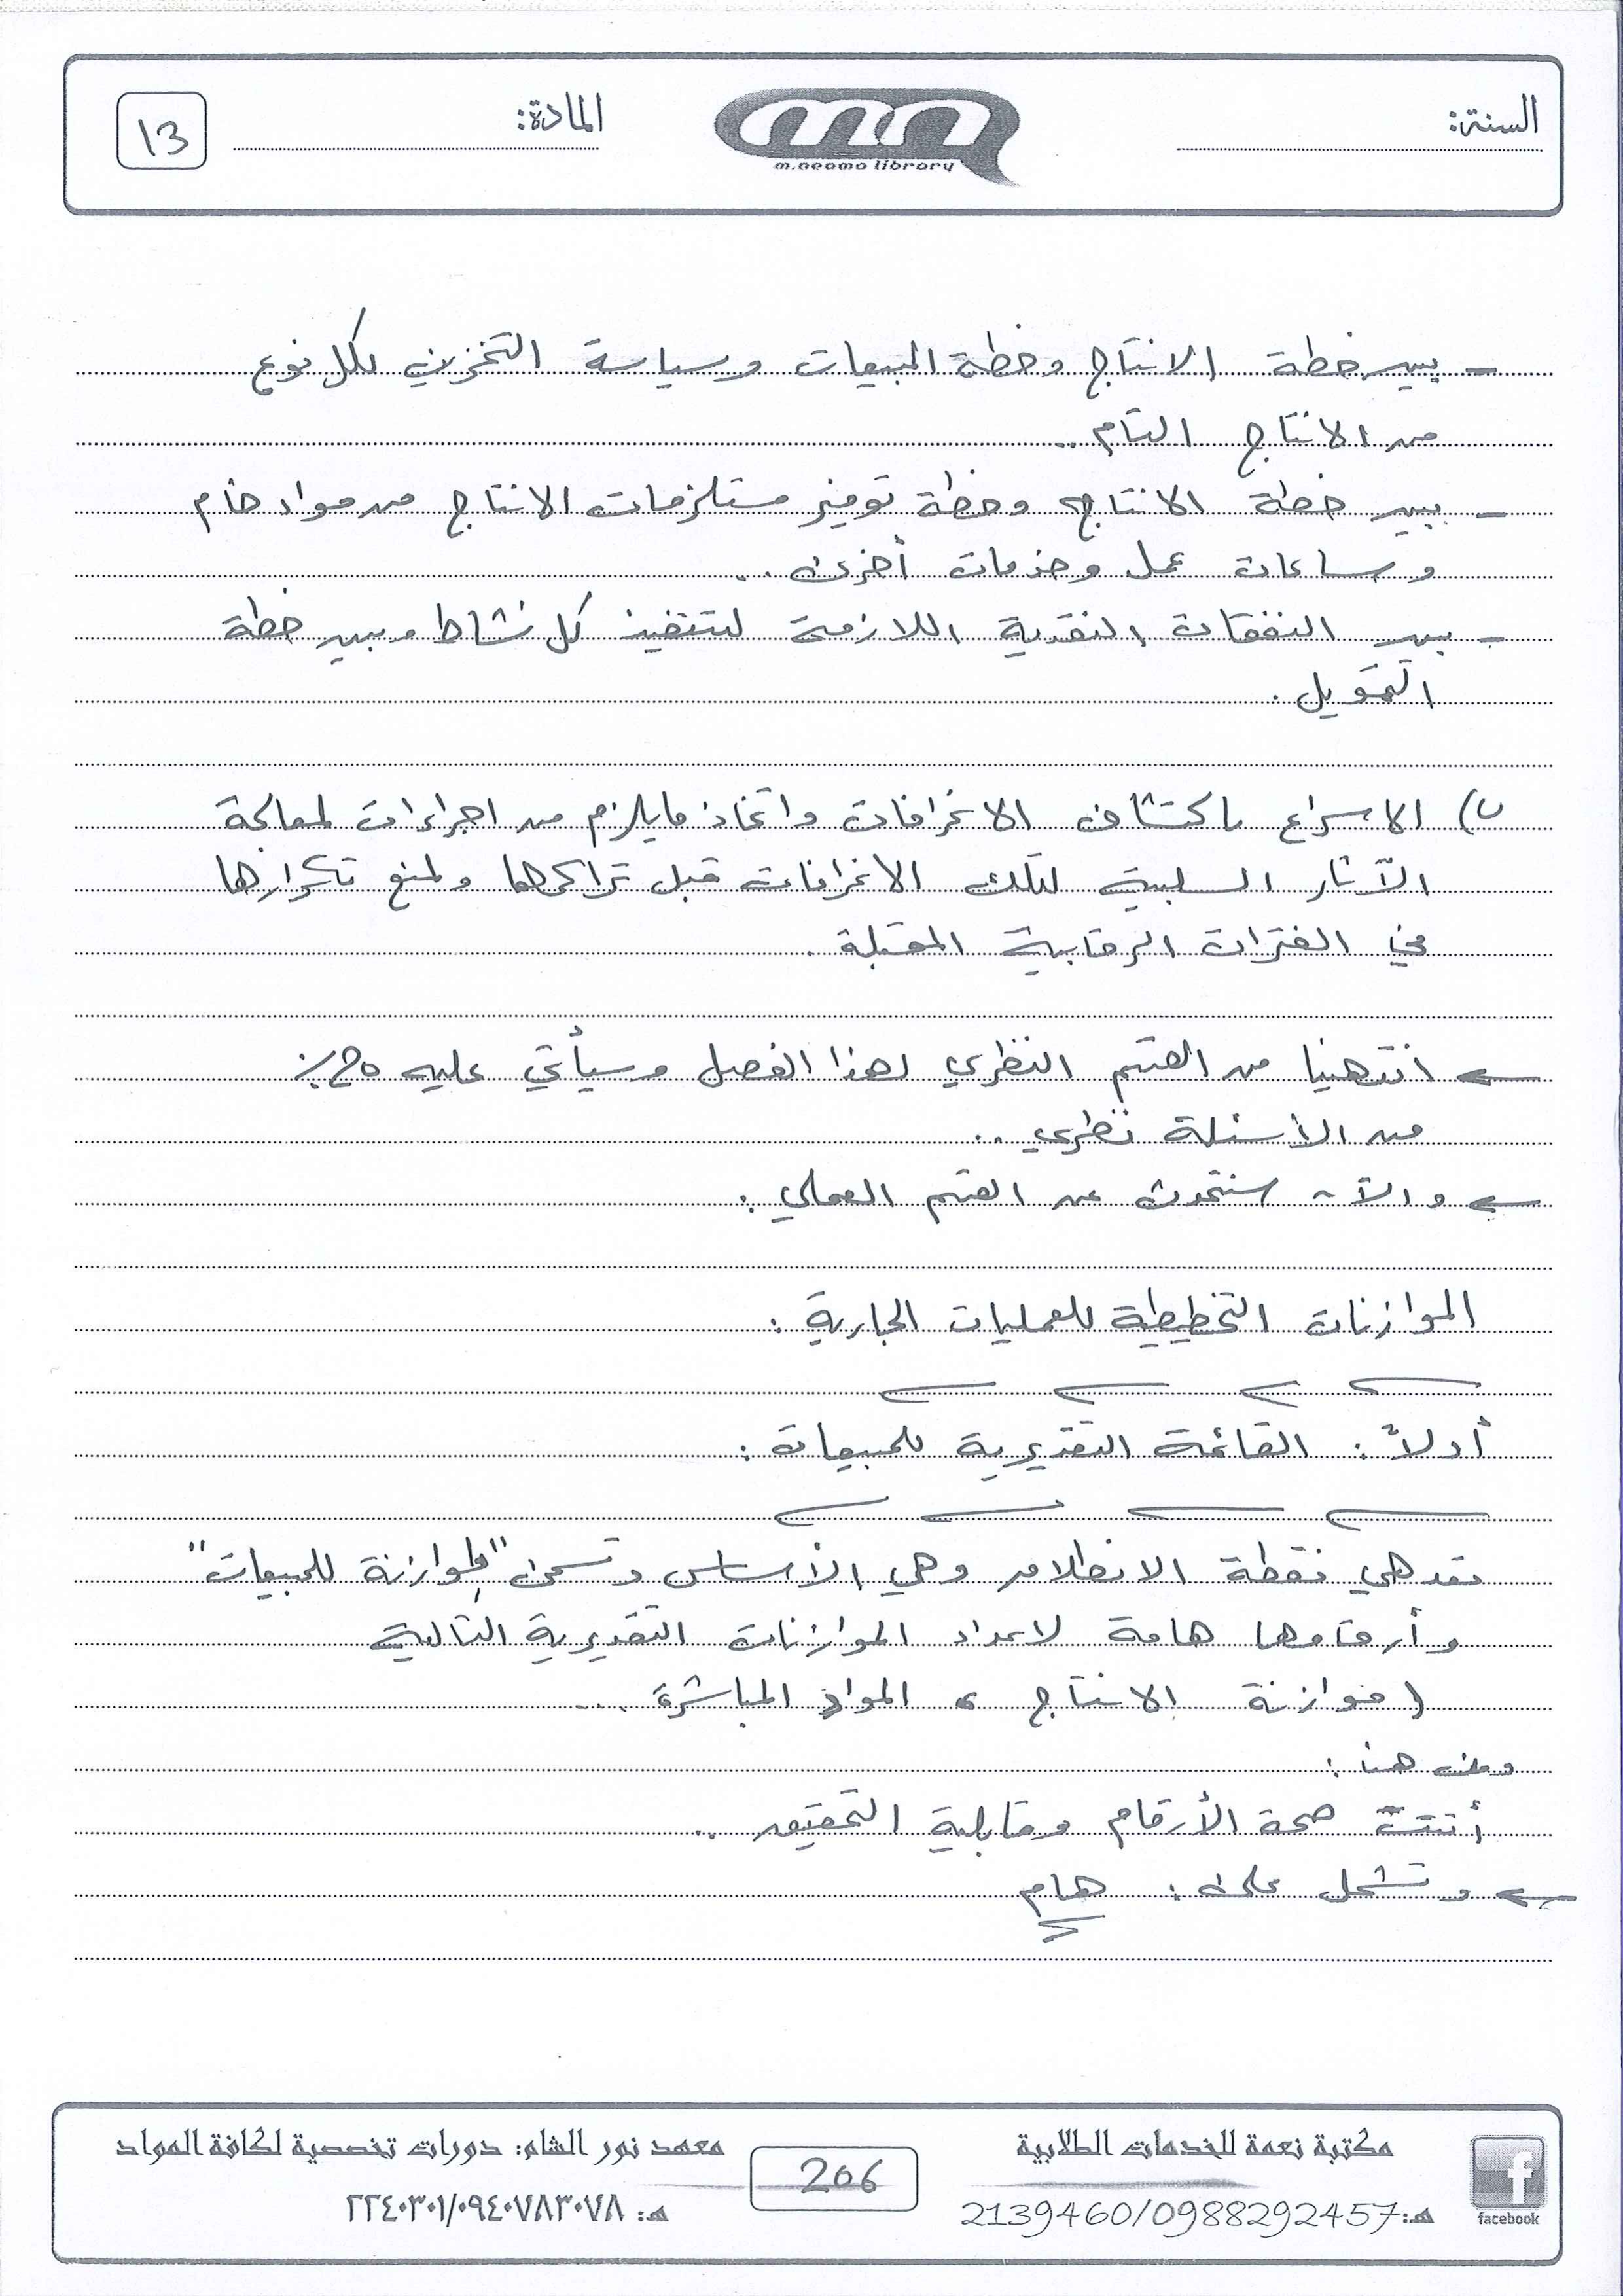 السنة:
m.neama library
المادة:
13
- بين خطة الانتاج وخطة المبيعات وسياسة التخزين لكل نوع
من الانتاج التام ..
- بين خطة الانتاج وخطة توفير مستلزمات الانتاج من مواد خام
وساعات عمل وخدمات أخرى ..
- بين النفقات النقدية اللازمة لتنفيذ كل نشاط وبين خطة
التمويل .
ب) الاسراع باكتشاف الانحرافات واتخاذ مايلزم من اجراءات لمعالجة
الآثار السلبية لتلك الانحرافات قبل تراكمها ولمنع تكرارها
في الفترات الرقابية المقبلة .
انتهينا من القسم النظري لهذا الفصل وسيأتي عليه 20%
من الأسئلة نظري ..
والآن سنتحدث عن القسم العملي :
الموازنات التخطيطية للعمليات الجارية :
أولاً : القائمة التقديرية للمبيعات :
تعد هي نقطة الانطلاق وهي الأساس وتسمى "موازنة للمبيعات"
وأرقامها هامة لاعداد الموازنات التقديرية التالية
( موازنة الانتاج ، المواد المباشرة ...
ومن هنا :
صحة الأرقام وقابلية التحقيق ..
وتشمل على : هام
مكتبة نعمة للخدمات الطلابية
هـ:2139460/0988292457
facebook
206
معهد نور الشام: دورات تخصصية لكافة المواد
هـ: ٢٢٤٠٣٠١/٠٩٤٠٧٨٣٠٧٨